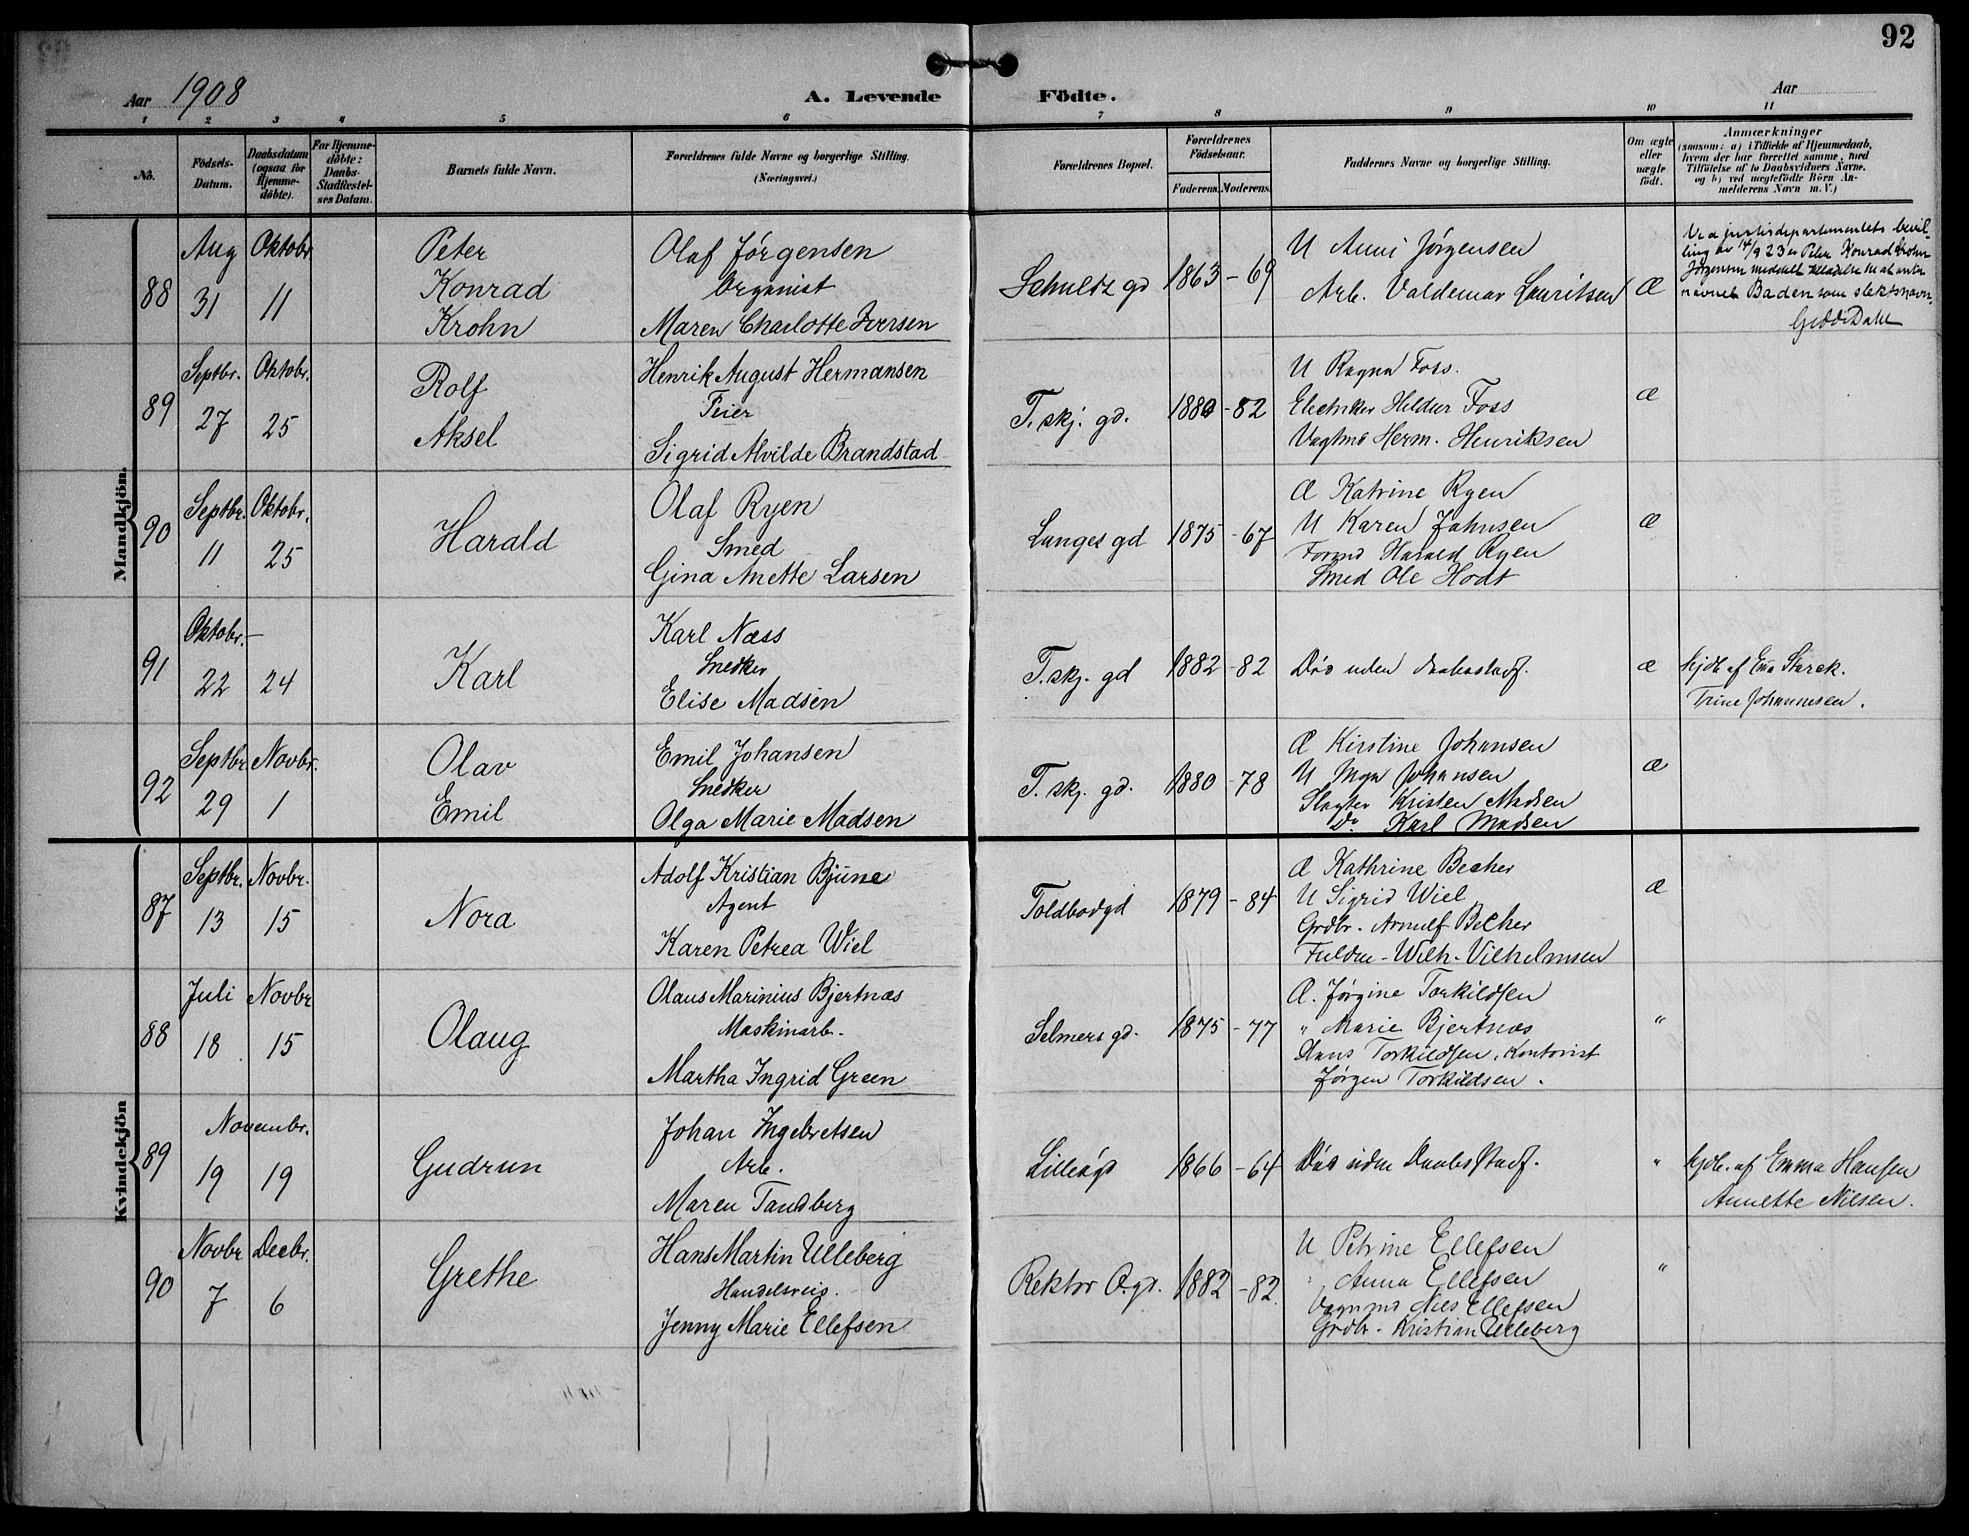 92
Aar 1908
A. Levende Födte.
Aar
1 2 3 4 5 6 7 8 9 10 11
No.
Födsels-Datum.
Daabsdatum (ogsaa for Hjemmedöbte).
For Hjemmedöbte: Daabs-Stadfæstelses Datum.
Barnets fulde Navn.
Forældrenes fulde Navne og borgerlige Stilling. (Næringsvei.)
Forældrenes Bopæl.
Forældrenes Födselsaar.
Faderens. Moderens.
Faddernes Navne og borgerlige Stilling.
Om ægte eller uægte födt.
Anmærkninger
(saasom: a) i Tilfælde af Hjemmedaab, hvem der har forrettet samme, med Tilföielse af to Daabsvidners Navne, og b) ved uægtefödte Börn Anmelderens Navn m. V.)
Mandkjön.
88
Aug 31
Oktobr. 11
Peter
Konrad
Krohn
Olaf Jørgensen
Organist
Maren Charlotte Iversen
Schultz gd
1863 - 69
U Anni Jørgensen
Arb. Valdemar Lauritsen
Æ
Ved justisdepartementets bevil-
ling av 14/9 23 er Peter Konrad Krohn
Jørgensen meddelt tilladelse til at anta
navnet Baden som slektsnavn.
89
Septbr. 27
Oktobr. 25
Rolf
Aksel
Henrik August Hermansen
Feier
Sigrid Alvilde Brandstad
T. skj. gd.
1880 - 82
U Ragna Foss.
Electriker Foss
Herm. Henriksen
Æ
90
Septbr. 11
Oktobr. 25
Harald
Olaf Ryen
Smed
Gina Anette Larsen
Langes gd
1875 - 67
Æ Katrine Ryen
U Karen Jahnsen
Formd Harald Ryen
Smed Ole Hodt
Æ
91
Oktobr. -
22 24
Karl
Karl Næss
Snedker
Elise Madsen
T. skj. gd
1882 - 82
Død uden daabsstadf.
Æ
hjdb. af Starck.
Trine Johannesen.
92
Septbr. 29
Novbr. 1
Olav
Emil
Emil Johansen
Snedker
Olga Marie Madsen
T. skj. gd.
1880 - 78
Æ Kirstine Johansen
U Inga Johansen
Slagter Kristen Madsen
Do Karl Madsen
Æ
Kvindekjön
87
Septbr. 13
Novbr. 15
Nora
Adolf Kristian Bjune
Agent
Karen Petrea Wiel
Toldbodgd
1879 - 84
Æ Kathrine Becher
U Sigrid Wiel
Grdbr. Arnulf Becher
Wilh. Vilhelmsen
Æ
88
Juli 18
Novbr 15
Olaug
Olaus Marinius Bjertnæs
Maskinarb.
Martha Ingrid Green
Selmers gd.
1875 - 77
Æ. Jørgine Torkildsen
" Marie Bjertnæs
Hans Torkildsen, Kontorist
Jørgen Torkildsen.
"
89
Novembr.
19 19
Gudrun
Johan Ingebretsen
Arb.
Maren Tandberg
1866 - 64
Død uden Daabsstadf.
"
hjdb. af Emma Hansen
Annette Nilsen.
90
Novbr 7
Decbr. 6
Grethe
Hans Martin Ulleberg
Handelsreis.
Jenny Marie Ellefsen
Rektor O.gd.
1882 - 82
U Petrine Ellefsen
" Anna Ellefsen
Vognmd Nils Ellefsen
Grdbr. Kristian Ulleberg
"